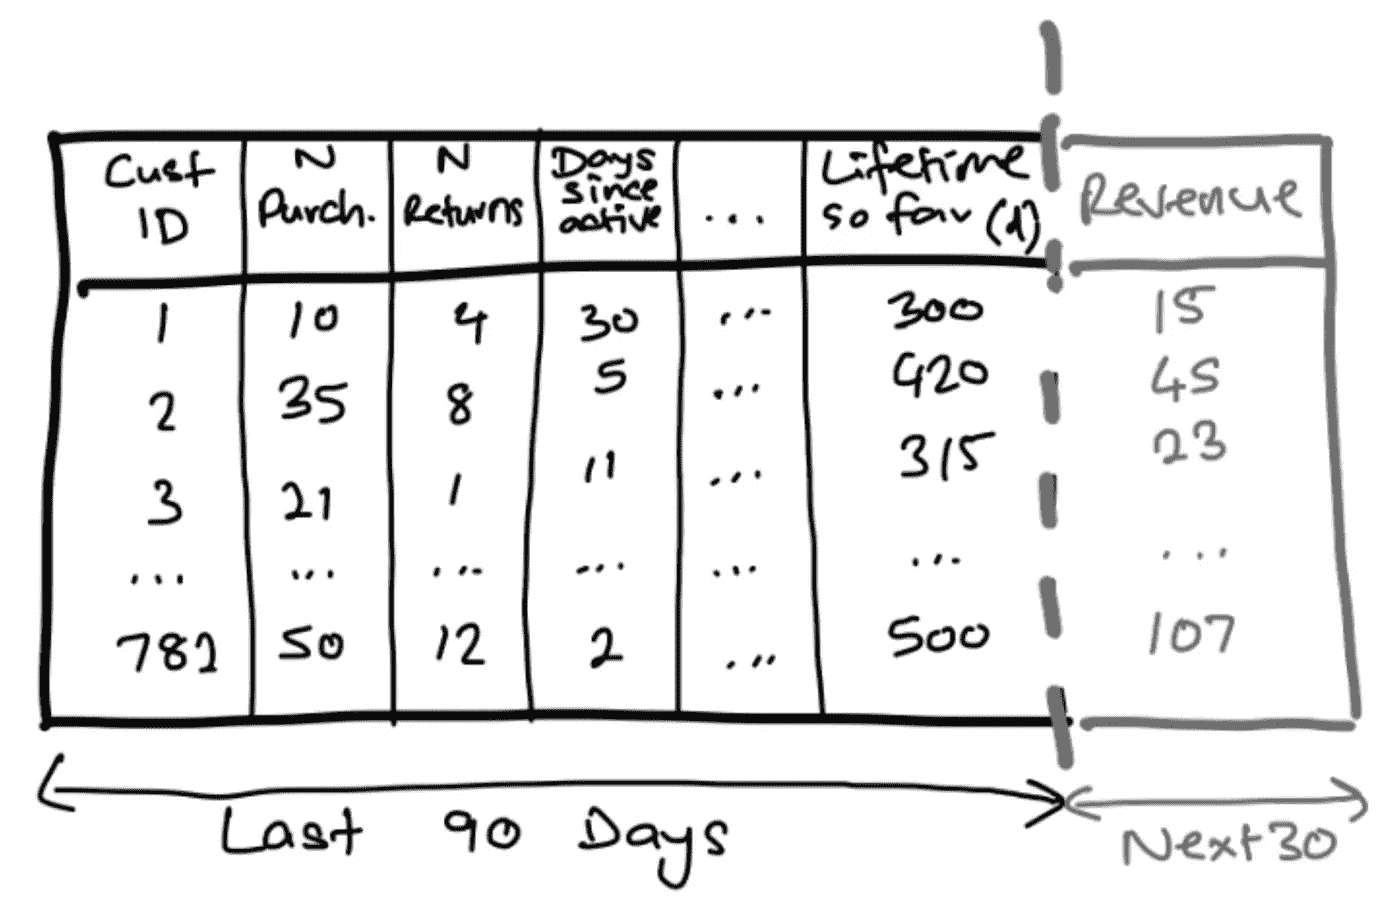 Cust ID | N Purch. | N Returns | Days since active | ... | Lifetime so far (d) | Revenue
1 | 10 | 4 | 30 | ... | 300 | 15
2 | 35 | 8 | 5 | ... | 420 | 45
3 | 21 | 1 | 11 | ... | 315 | 23
... | ... | ... | ... | ... | ... | ...
782 | 50 | 12 | 2 | ... | 500 | 107
Last 90 Days
Next 30